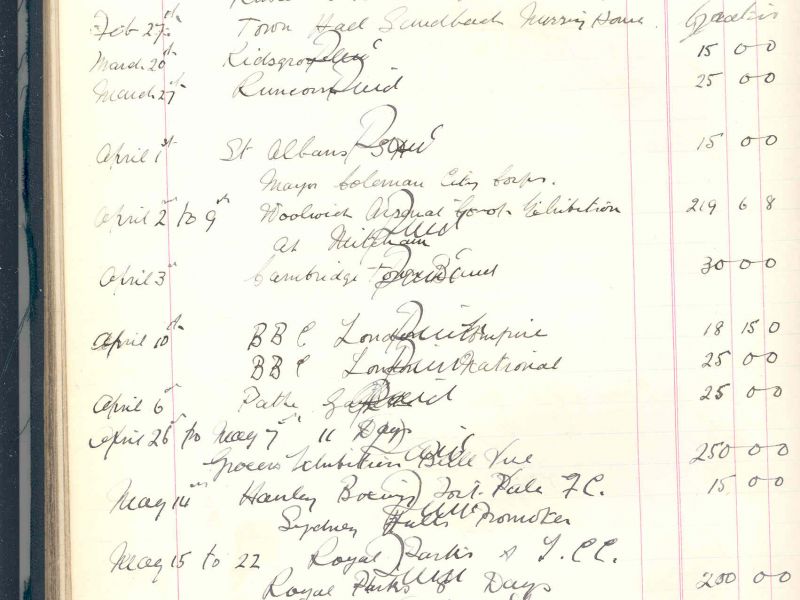 Feb 27th Town Hall Sandbach Nursing Home
March 20th Kidsgrove Paid 15 0 0
March 27th Runcorn Paid 25 0 0
April 1st St Albans Paid 15 0 0
Mayor Coleman City Corps.
April 2nd to 9th Woolwich Arsenal Co-op Exhibition 219 6 8
at Mitcham Paid
April 3rd Cambridge Paid 30 0 0
April 10th BBC London Empire Paid 18 15 0
BBC London National Paid 25 0 0
April 6th Pathe Paid 25 0 0
April 26th to May 7th 11 Days
Grocers Exhibition Belle Vue Paid 250 0 0
May 14th Hanley Boxing Port Vale F.C. 15 0 0
Sydney Hulls Promoter Paid
May 15 to 22 Royal Parks & L.C.C.
Royal Parks 8 Days Paid 200 0 0